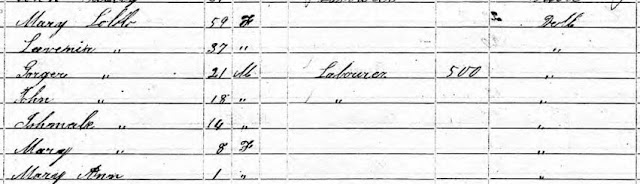 Mary Lollo 59 F " Do
Lavenin " 37 " "
Gorger " 21 M Labourer 500 "
John " 18 " " "
Ishmale " 14 " "
Mary " 8 F "
Mary Ann 1 " "